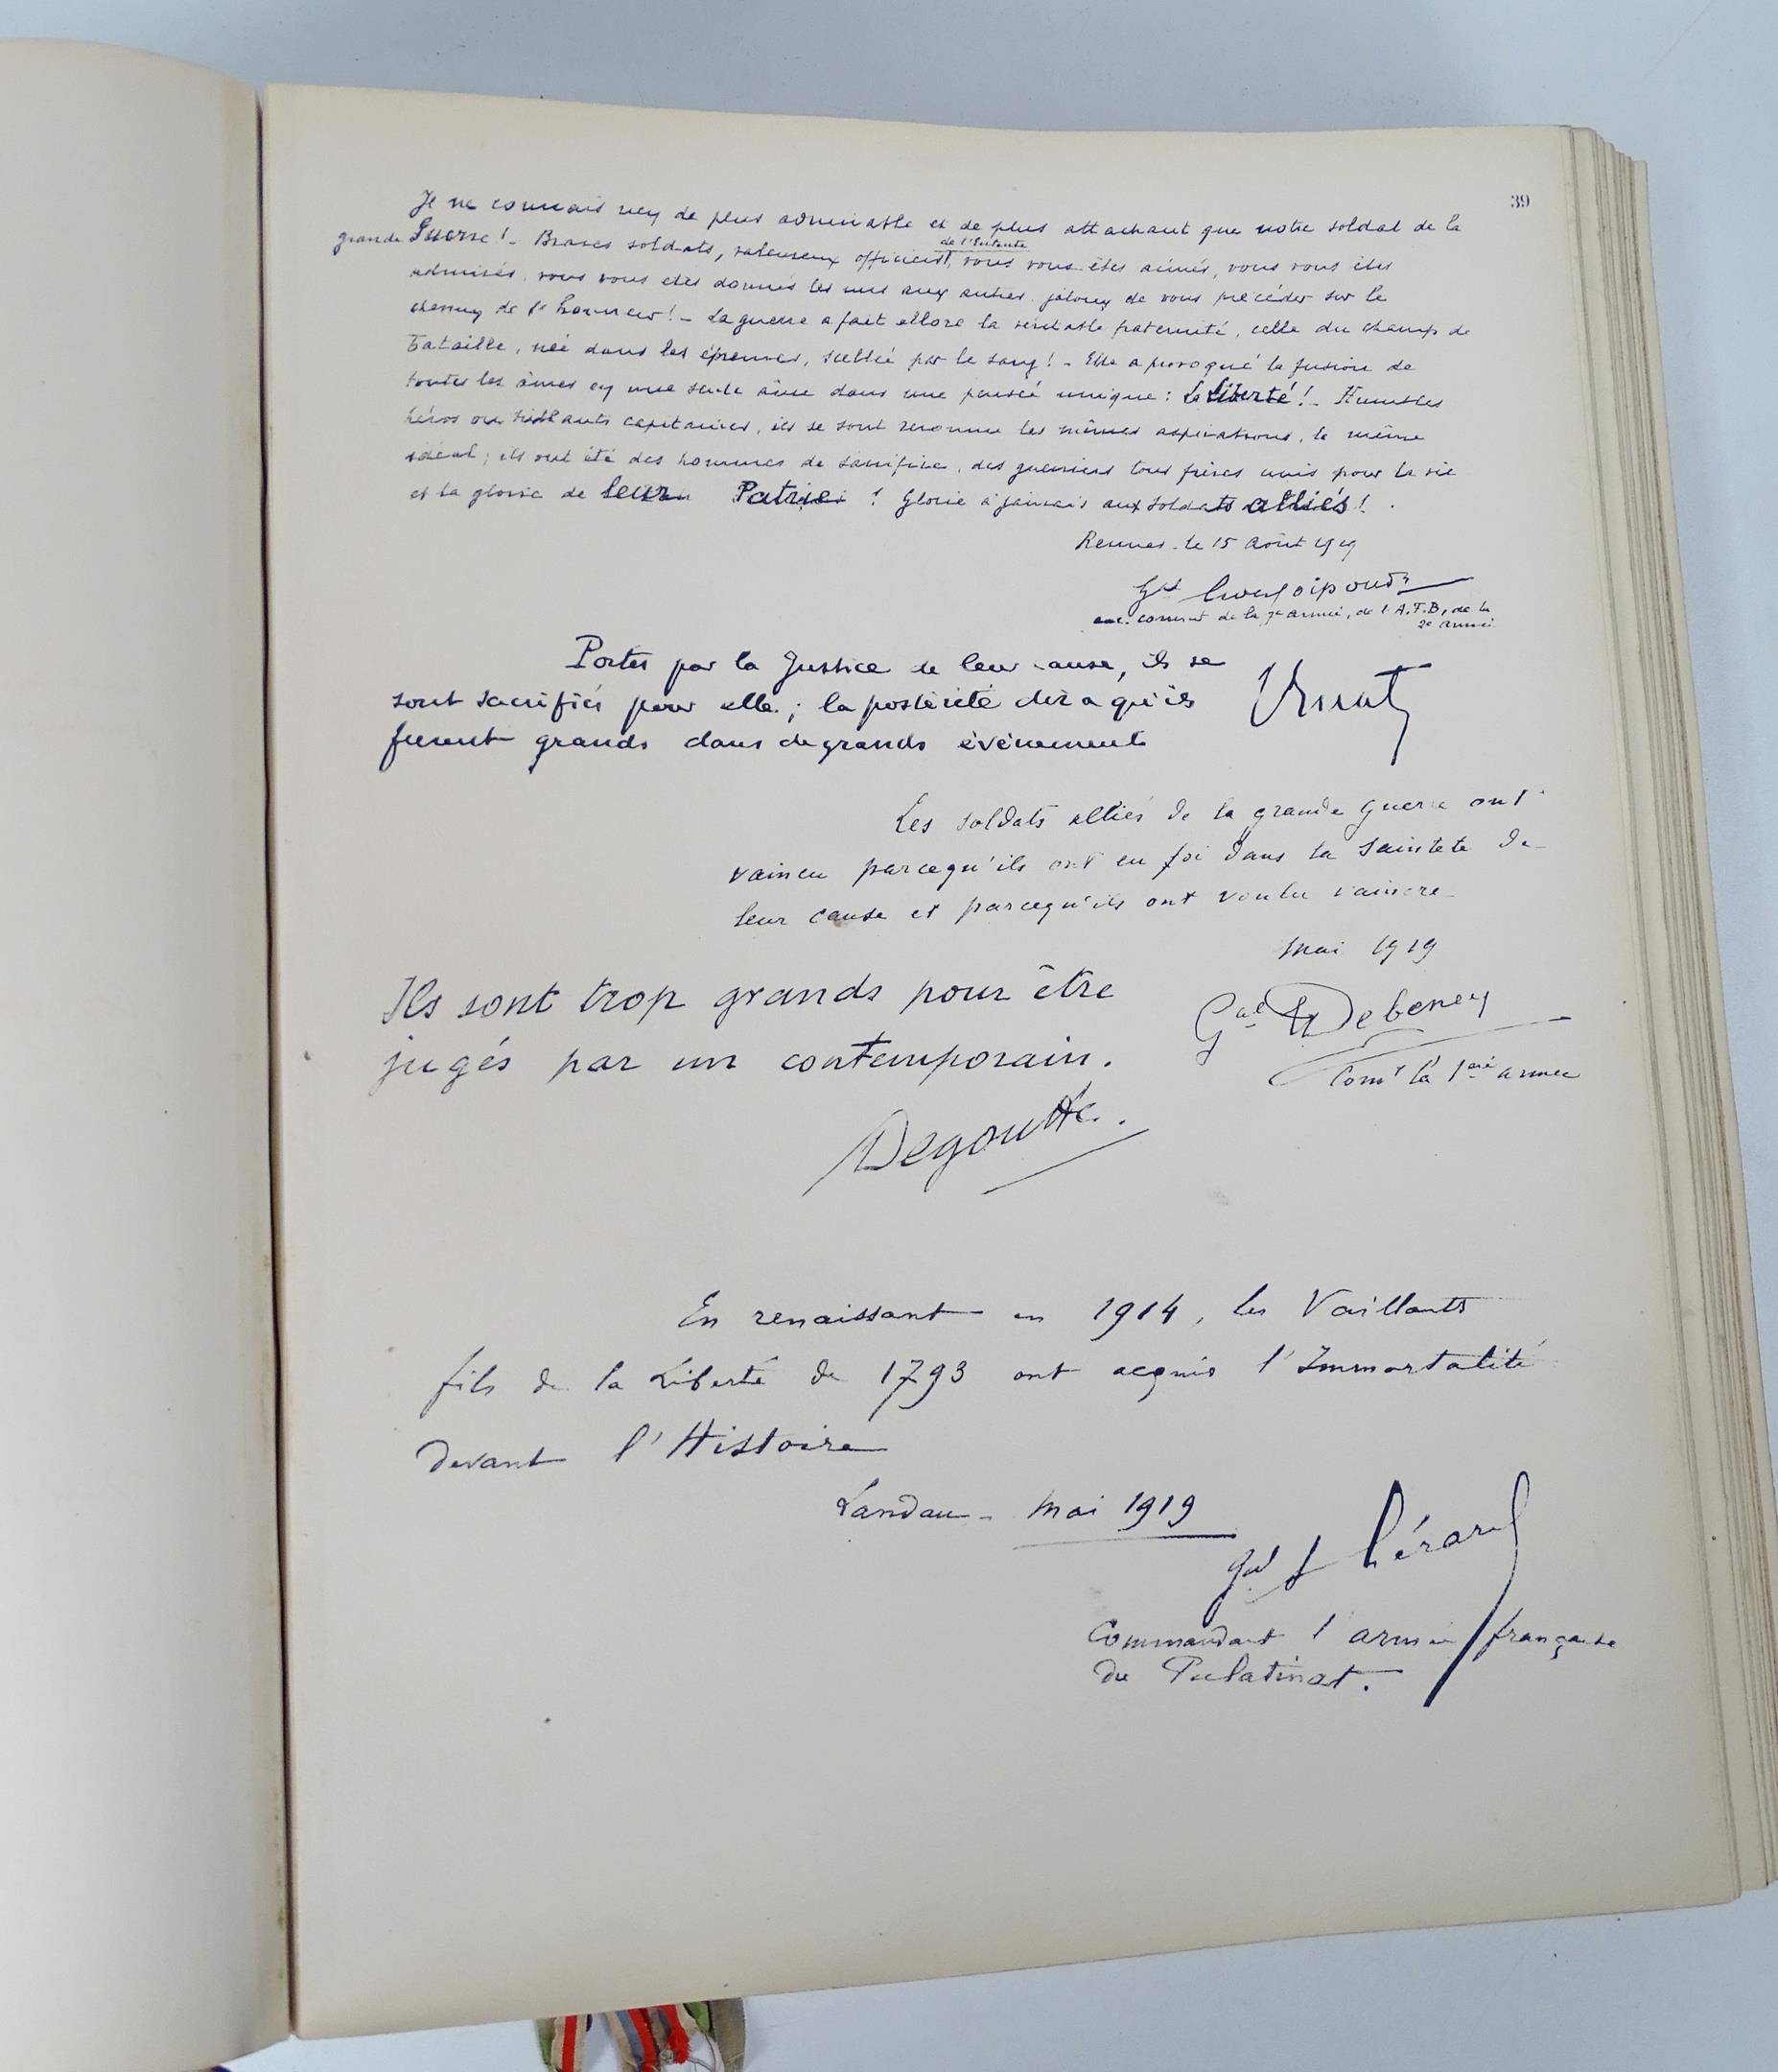 39
Je ne connais rien de plus admirable et de plus attachant que notre soldat de la
grande Guerre ! - Braves soldats, valeureux officiers de l'Entente, vous vous êtes aimés, vous vous êtes
admirés, vous vous êtes donnés les uns aux autres, jaloux de vous précéder sur le
chemin de l'honneur ! - La guerre a fait éclore la véritable fraternité, celle du champ de
Bataille, née dans les épreuves, scellée par le sang ! - Elle a provoqué la fusion de
toutes les âmes en une seule âme dans une pensée unique : La liberté ! - Humbles
héros ou brillants capitaines, ils se sont reconnu les mêmes aspirations, le même
idéal ; ils ont été des hommes de sacrifice, des guerriers tous frères unis pour la vie
et la gloire de leurs Patries ! Gloire à jamais aux soldats alliés !
Rennes - le 15 Août 1919
Gal
anc. commt de la 7e armée, de l'A.F.B, de la
2e armée
Portés par la Justice de leur cause, ils se
sont sacrifiés pour elle ; la postérité dira qu'ils
furent grands dans de grands événements
Les soldats alliés de la grande guerre ont
vaincu parcequ'ils ont eu foi dans la sainteté de
leur cause et parcequ'ils ont voulu vaincre
Mai 1919
Gal Debeney
Comt la 1ère armée
Ils sont trop grands pour être
jugés par un contemporain.
Degoutte.
En renaissant en 1914, les Vaillants
fils de la Liberté de 1793 ont acquis l'Immortalité
devant l'Histoire
Landau - Mai 1919
Gal Gérard
Commandant l'armée française
du Palatinat.